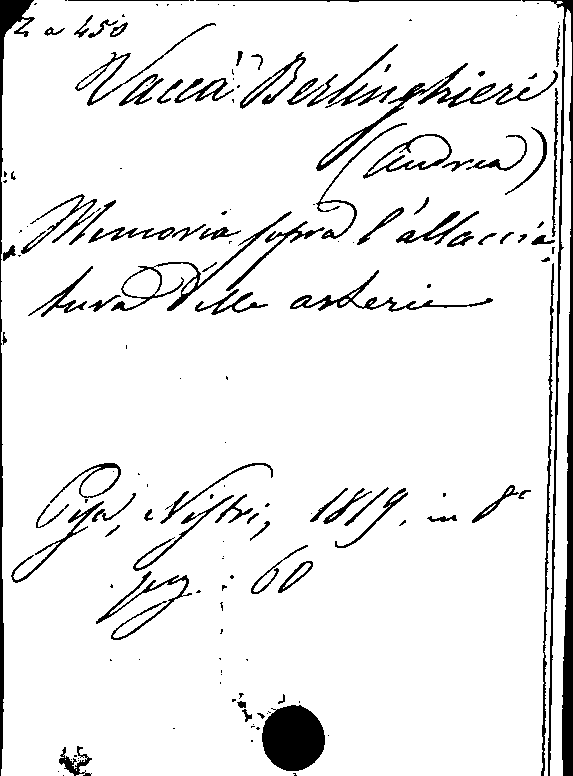 Z a 450
Vaccà Berlinghieri
(Andrea)
Memoria sopra l'allaccia
tura delle arterie
Pisa, Nistri, 1819. in 8°
pag. 60